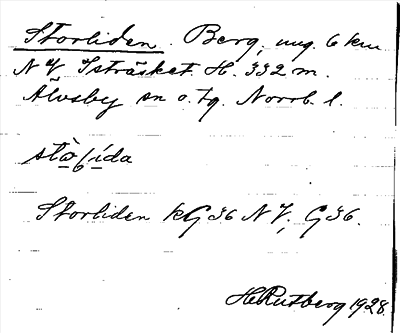 Storliden. Berg, ung. 6 km
NV Isträsket. H. 332 m.
Älvsby sn o. tg. Norrb. l.
Storliden kG36 NV, G36.
H Rutberg 1928.